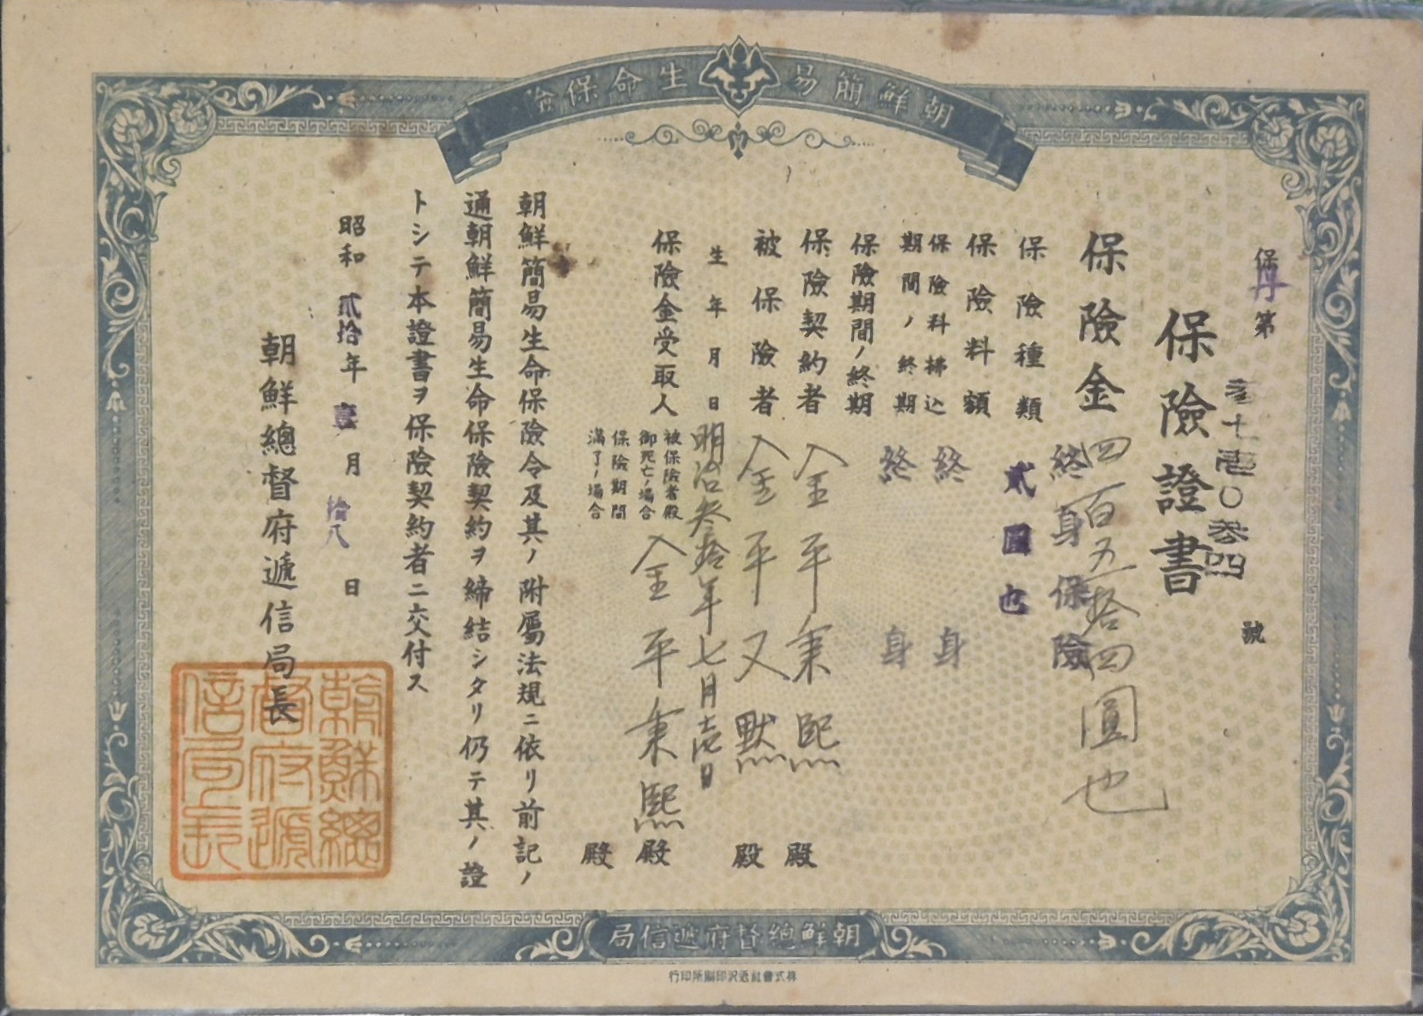 朝鮮簡易生命保險
保險證書
保
丹
第
號
保險金 四百五拾四圓也
保險種類 終身保險
保險料額 貳圓也
保險料拂込期間ノ終期 終身
保險期間ノ終期 終身
保險契約者 金平秉熙 殿
被保險者 金平又默 殿
生年月日 明治參拾年七月壱日
保險金受取人
被保險者殿御死亡ノ場合 金平秉熙 殿
保險期間滿了ノ場合 殿
朝鮮簡易生命保險令及其ノ附屬法規ニ依リ前記ノ
通朝鮮簡易生命保險契約ヲ締結シタリ仍テ其ノ證
トシテ本證書ヲ保險契約者ニ交付ス
昭和貳拾年壹月拾八日
朝鮮總督府遞信局長
朝鮮總督府遞信局長
朝鮮總督府遞信局